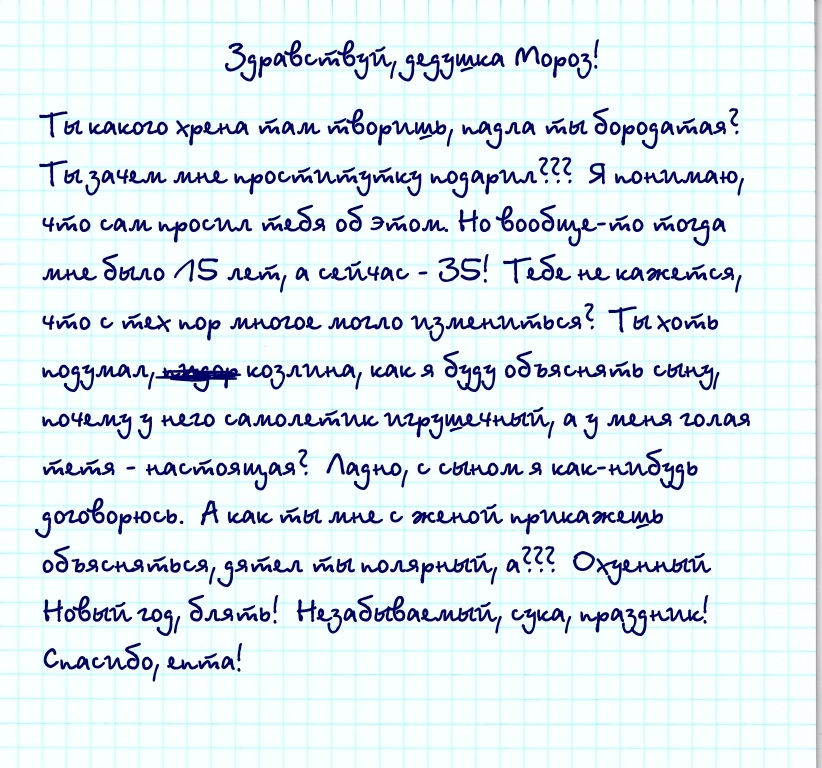 Здравствуй, дедушка Мороз!
Ты какого хрена там творишь, падла ты бородатая?
Ты зачем мне проститутку подарил??? Я понимаю,
что сам просил тебя об этом. Но вообще-то тогда
мне было 15 лет, а сейчас - 35! Тебе не кажется,
что с тех пор многое могло измениться? Ты хоть
подумал, козлина, как я буду объяснять сыну,
почему у него самолетик игрушечный, а у меня голая
тетя - настоящая? Ладно, с сыном я как-нибудь
договорюсь. А как ты мне с женой прикажешь
объясняться, дятел ты полярный, а??? Охуенный
Новый год, блять! Незабываемый, сука, праздник!
Спасибо, епта!